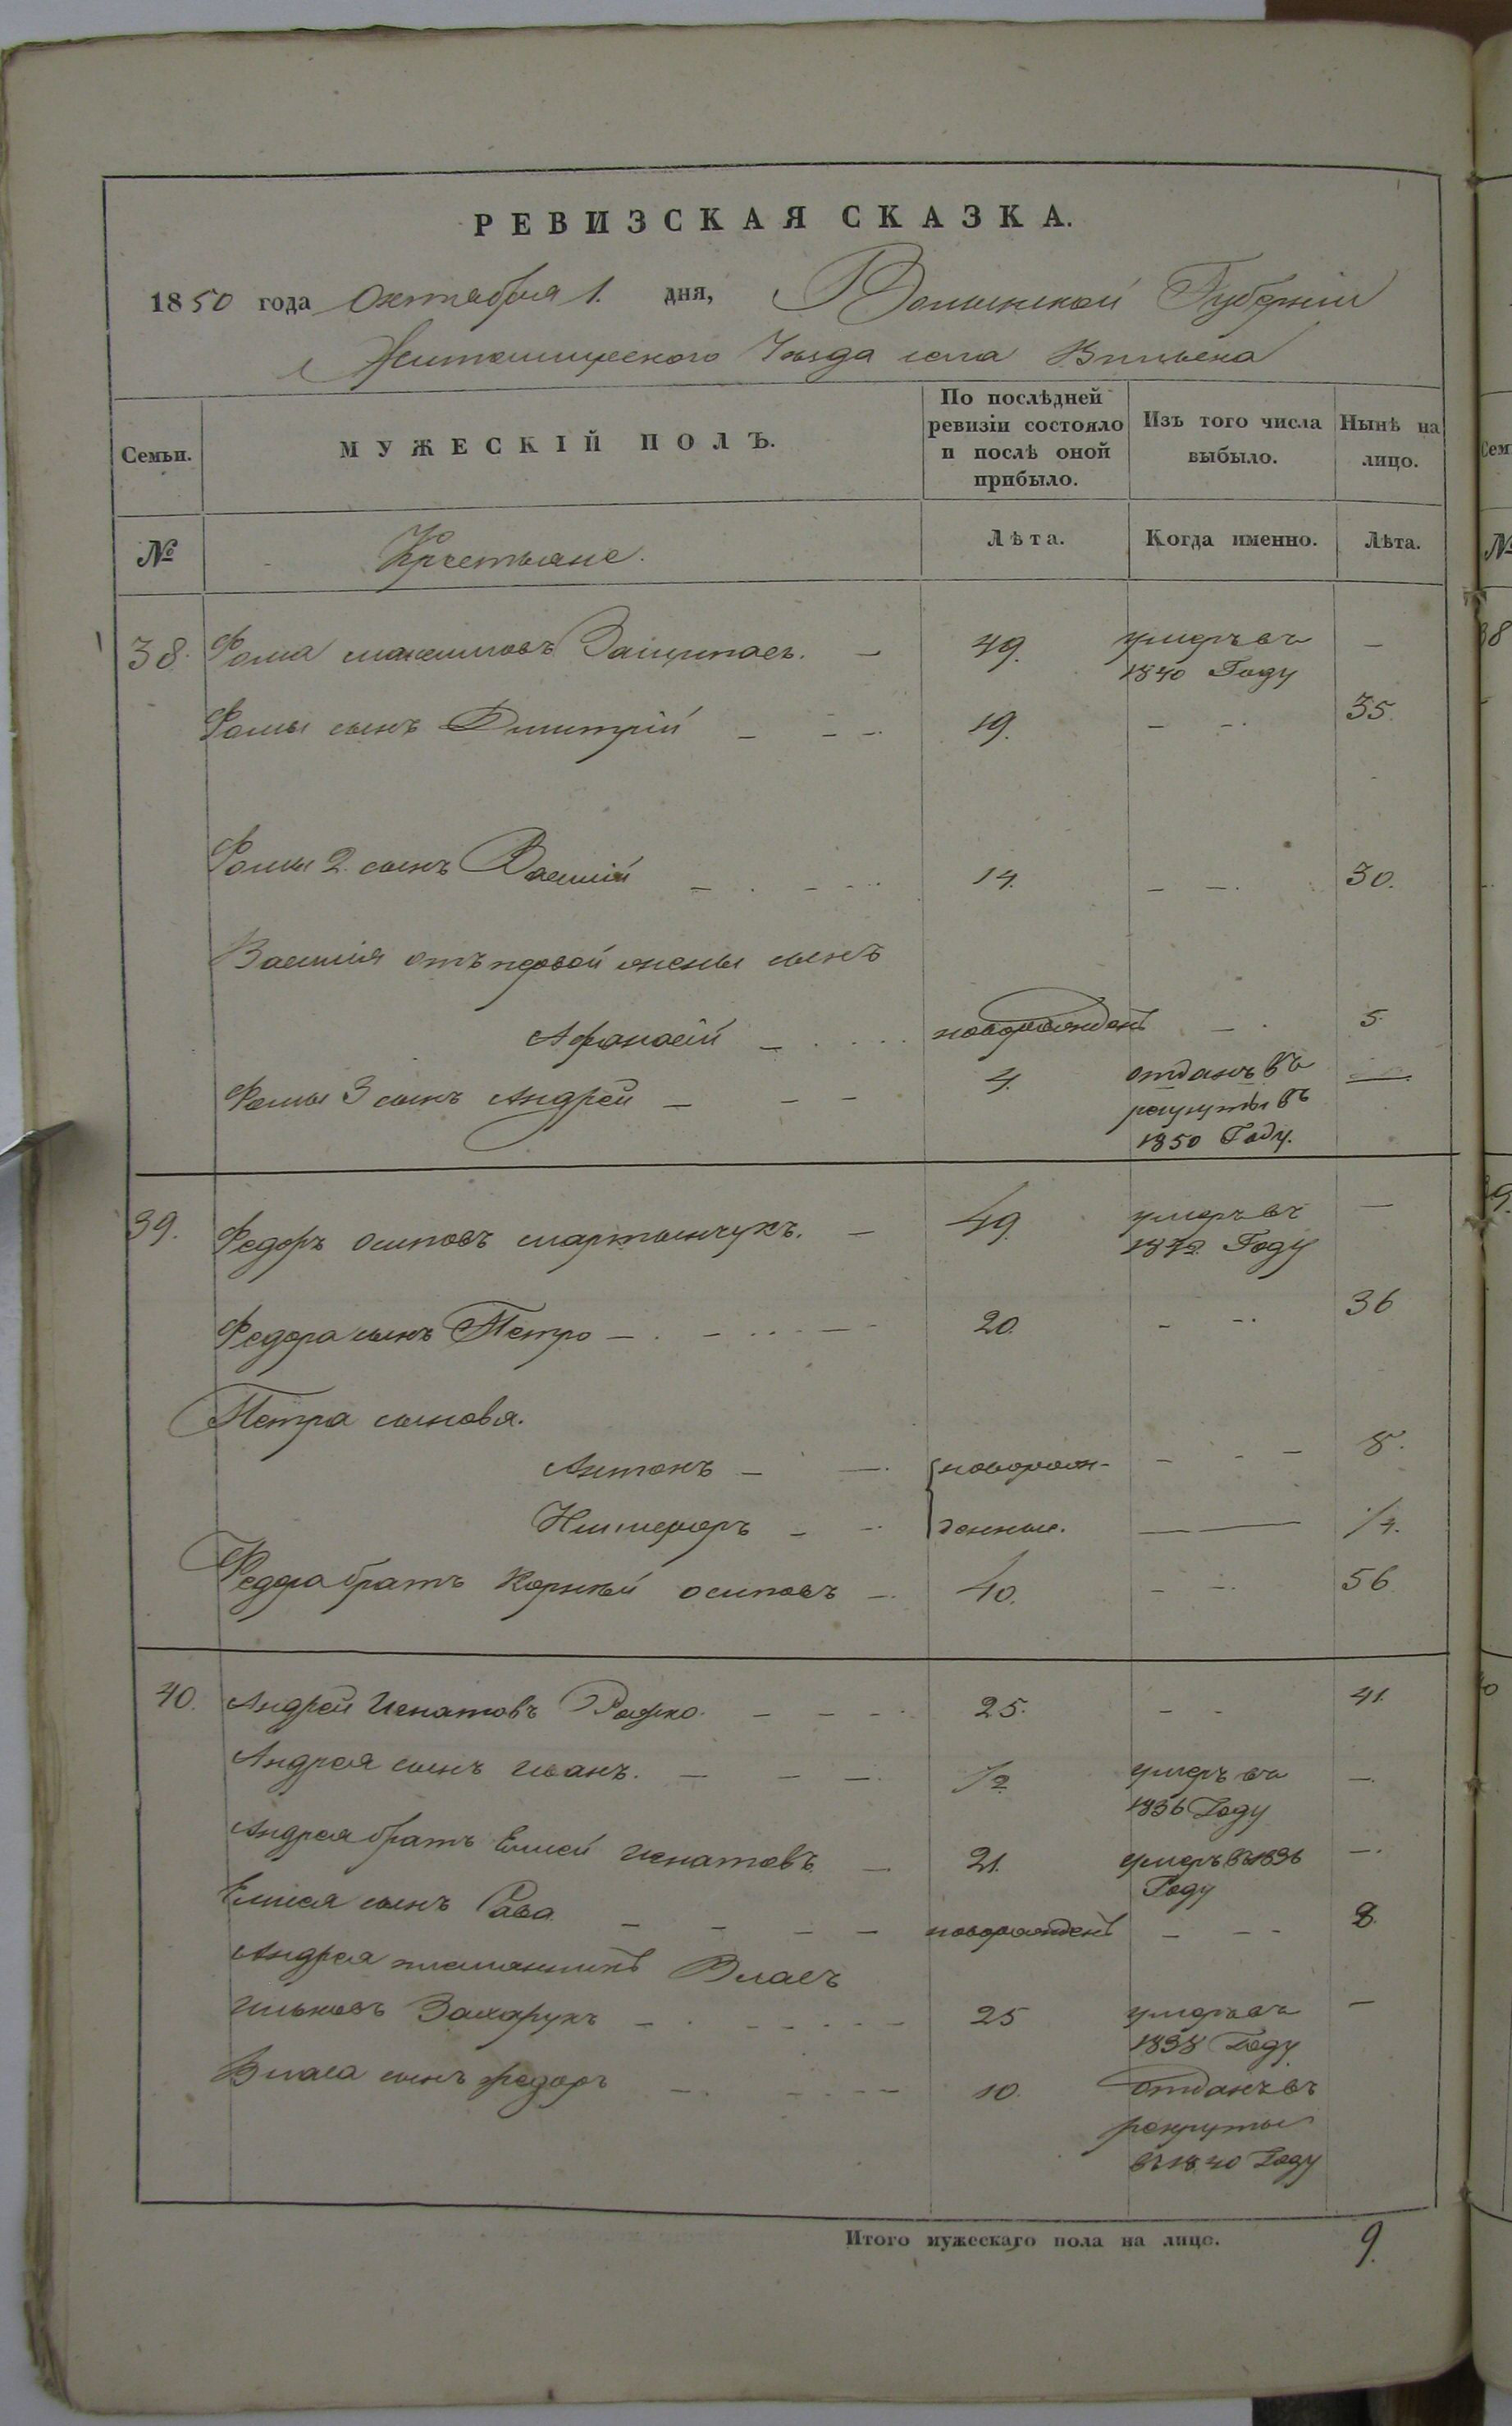 РЕВИЗСКАЯ СКАЗКА.
1850 года Октября 1. дня, Волынской Губернии
Житомирского Уезда села Вильска
Семьи. МУЖЕСКІЙ ПОЛЪ. По послѣдней ревизіи состояло и послѣ оной прибыло. Изъ того числа выбыло. Нынѣ на лицо.
№ Крестьяне. Лѣта. Когда именно. Лѣта.
38. Фома Максимовъ 49. умеръ въ —
1840 Году
Фомы сынъ Дмитрій — — — 19. — — 35.
Фомы 2. сынъ Василій — — — 14. — — 30.
Василія отъ первой жены сынъ
Афанасій — новорожденъ — 5.
Фомы 3 сынъ Андрей — — — 4. отданъ въ —
рекруты въ
1850 Году.
39. Федоръ Осиповъ Мартынчукъ. — 49. умеръ въ —
Году
Федора сынъ Петро — — — 20. — — 36
Петра сыновья.
Антонъ — — новорож- — — — 8.
Никифоръ — — денные. — — 1/4.
Федора братъ Корнѣй Осиповъ — 40. — — 56
40. Андрей Игнатовъ — — — 25. — — 41.
Андрея сынъ Иванъ. — — — 1/2 умеръ въ —
1836 Году
Андрея братъ Елисей Игнатовъ — 21. умеръ въ 1836 —
Году
Елисея сынъ Сава — — — — новорожденъ — — — 8.
Андрея племянникъ Власъ
Ильковъ Захарукъ — — — 25 умеръ въ —
1838 Году
Власа сынъ Федоръ — — — 10. отданъ въ
рекруты
въ 1840 Году
Итого мужескаго пола на лицо. 9.